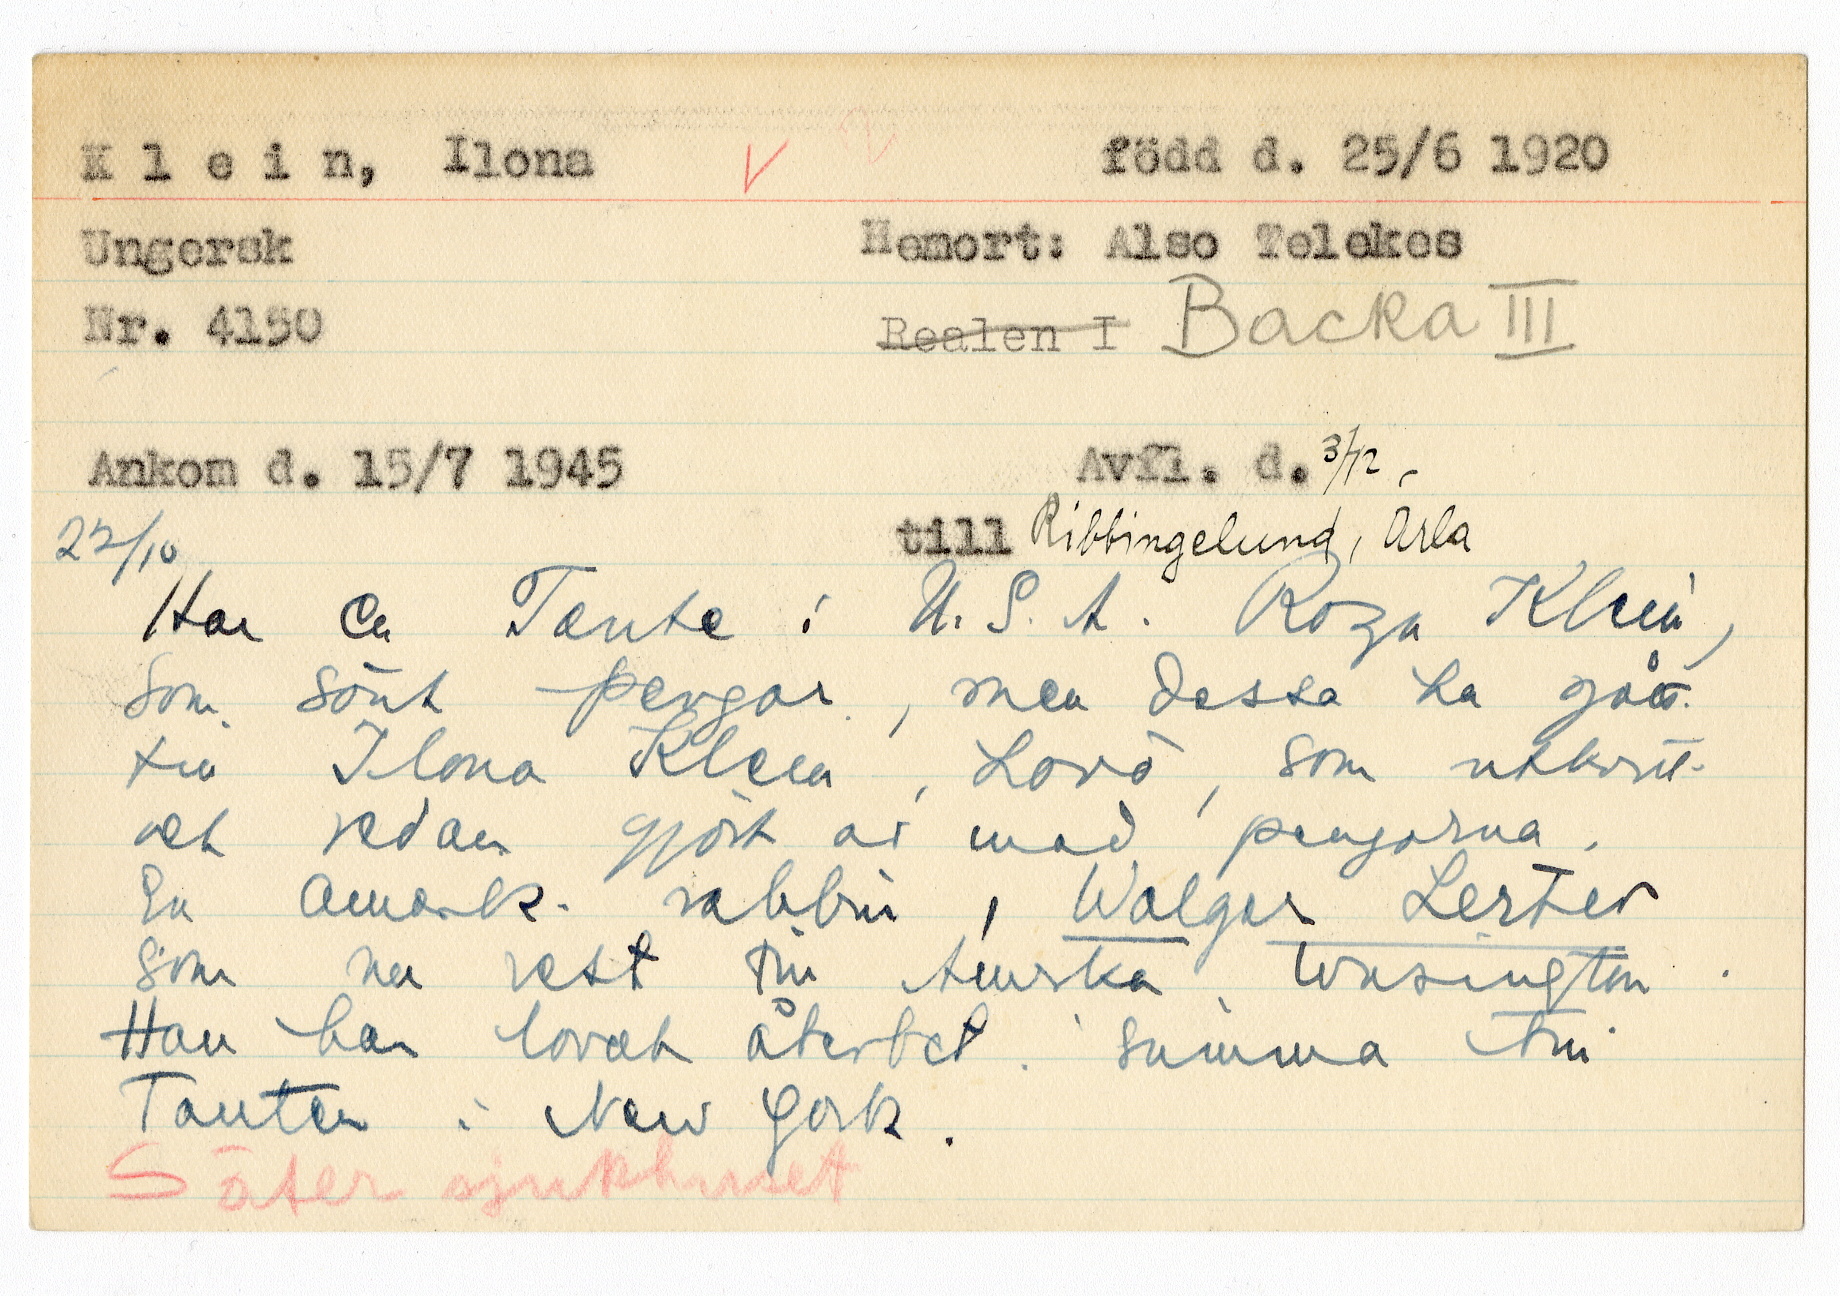 K l e i n, Ilona född d. 25/6 1920
Ungersk Hemort: Also Telekes
Nr. 4150 Realen I Backa III
Ankom d. 15/7 1945 Avfl. d. 3/12
22/10 till Ribbingelund, Ärla
Har en Tante i U.S.A. Roza Klein,
som sänt pengar, men dessa ha gått
till Ilona Klein, Lovö, som utkvit-
rat redan gjort av med pengarna.
En Amerik. rabbin, Walger Lerter
som nu rest till Amerika, Wasington.
Han har lovat återbet. summa till
Tanten i New York.
Säter sjukhuset